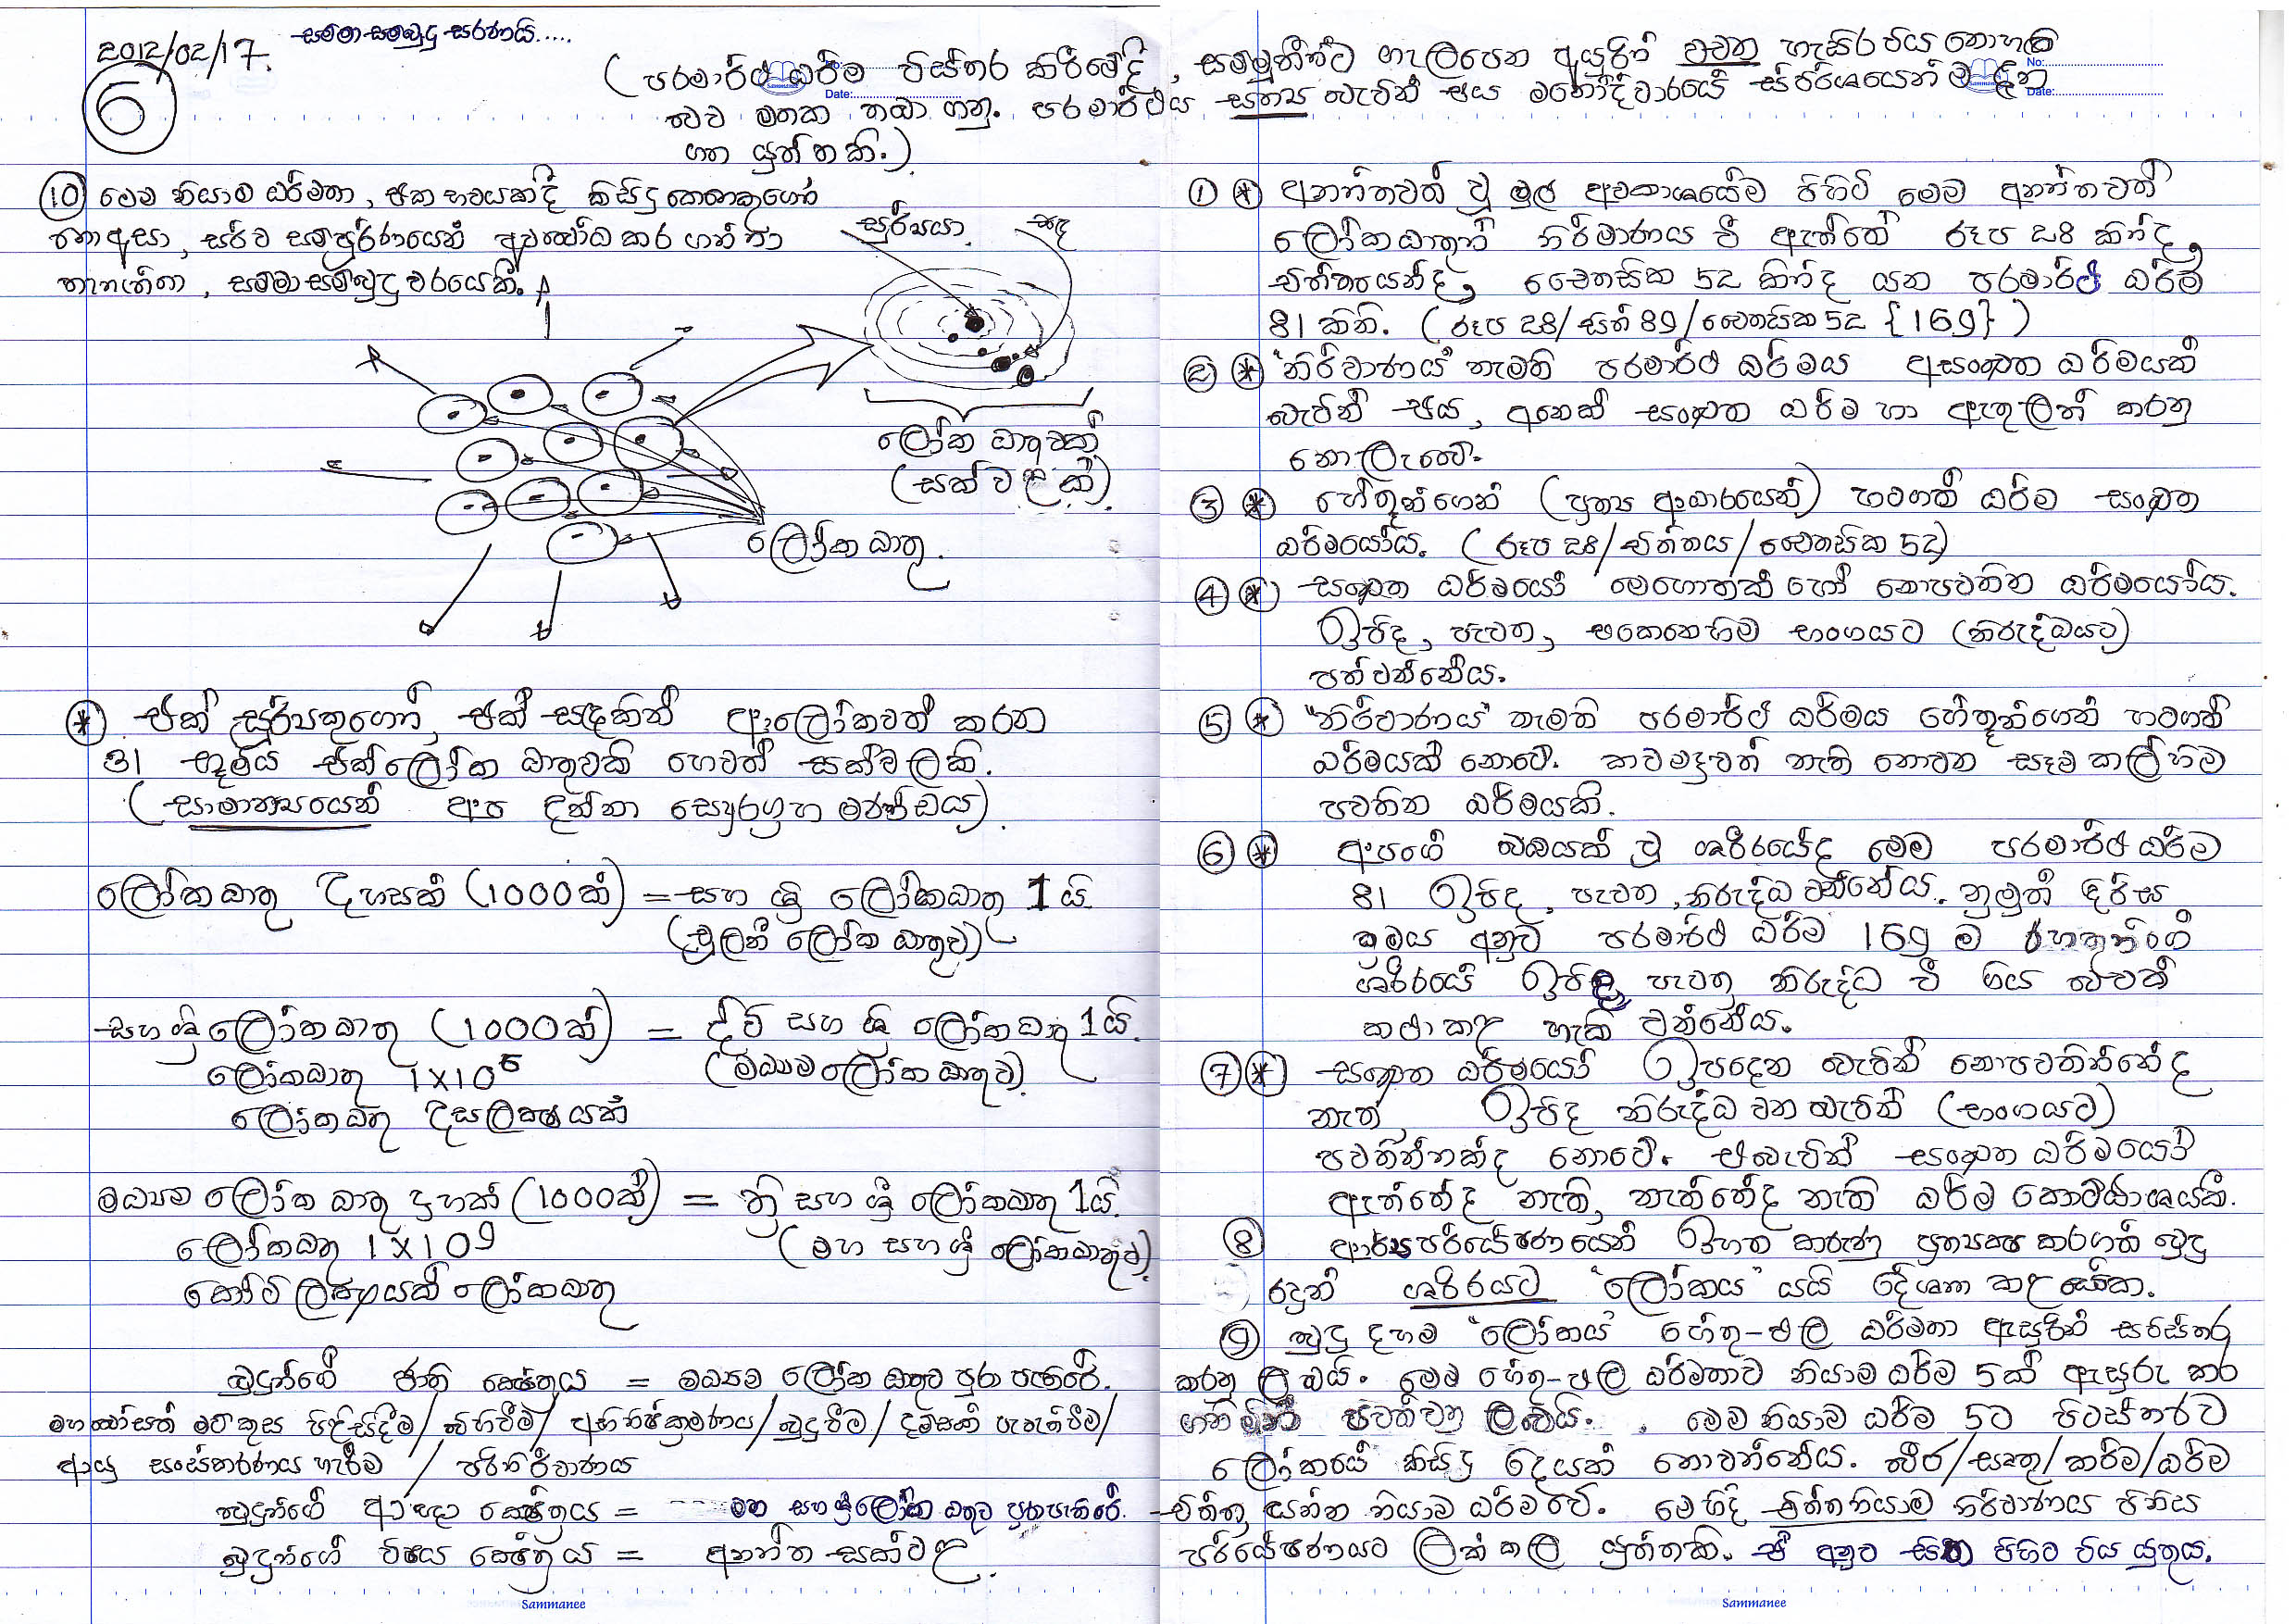 2012/02/17.
සම්මා සම්බුදු සරණයි.....
6
(පරමාර්ථ ධර්ම විස්තර කිරීමේදී, සම්මුතියට ගැලපෙන අයුරින් වචන හැසිරවිය නොහැකි
බව මතක තබා ගනු. පරමාර්ථය සත්‍ය බැවින් එය මනෝද්වාරයේ ස්පර්ශයෙන්ම දැන
ගත යුත්තකි.)
No:
Date:
Date:
10 මෙම නියාම ධර්මතා, එක භවයකදී කිසිදු කෙනකුගෙන්
නො අසා, සර්ව සම්පූර්ණයෙන් අවබෝධ කර ගන්නා
තැනැත්තා, සම්මා සම්බුදුවරයෙකි.
සූර්යයා
සඳ
ලෝක ධාතුවක්
(සක්වළක්)
ලෝක ධාතු.
* එක් සූර්යකුගෙන්, එක් සඳකින් ආලෝකවත් කරන
31 භූමිය එක් ලෝක ධාතුවකි හෙවත් සක්වලකි.
(සාමාන්‍යයෙන් අප දන්නා සෞරග්‍රහ මණ්ඩලය).
ලෝකධාතු දහසක් (1000ක්) = සහශ්‍රී ලෝකධාතු 1යි
(චූලනී ලෝක ධාතුව)
සහශ්‍රී ලෝකධාතු (1000ක්) = ද්වි සහශ්‍රී ලෝකධාතු 1යි.
ලෝකධාතු 1×10⁶ (මධ්‍යම ලෝක ධාතුව)
ලෝකධාතු දසලක්ෂයක්
මධ්‍යම ලෝක ධාතු දහක් (1000ක්) = ත්‍රි සහශ්‍රී ලෝකධාතු 1යි.
ලෝකධාතු 1×10⁹ (මහ සහශ්‍රී ලෝකධාතුව)
කෝටි ලක්ෂයක් ලෝකධාතු
බුදුන්ගේ ජාති ක්ෂේත්‍රය = මධ්‍යම ලෝක ධාතුව පුරා පැතිරේ.
මහබෝසත් මව්කුස පිළිසිඳීම/බිහිවීම/අභිනිෂ්ක්‍රමණය/බුදුවීම/දම්සක් පැවැත්වීම/
ආයු සංස්කරණය හැරීම / පරිනිර්වාණය
බුදුන්ගේ ආඥා ක්ෂේත්‍රය = මහ සහශ්‍රී ලෝක ධාතුව පුරා පැතිරේ.
බුදුන්ගේ විෂය ක්ෂේත්‍රය = අනන්ත සක්වළ.
Sammanee
1 * අනන්තවත් වූ මුල අවකාශයේම පිහිටි මෙම අනන්තවත්
ලෝකධාතුන් නිර්මාණය වී ඇත්තේ රූප 28 කින්ද,
චිත්තයෙන්ද, චෛතසික 52 කින්ද යන පරමාර්ථ ධර්ම
81 කිනි. (රූප 28/සිත් 89/චෛතසික 52 {169})
2 * 'නිර්වාණය' නැමති පරමාර්ථ ධර්මය අසංඛත ධර්මයක්
බැවින් එය, අනෙක් සංඛත ධර්ම හා ඇතුලත් කරනු
නො ලැබේ.
3 * හේතූන්ගෙන් (ප්‍රත්‍ය ආධාරයෙන්) හටගත් ධර්ම සංඛත
ධර්මයෝය. (රූප 28/චිත්තය/චෛතසික 52)
4 * සංඛත ධර්මයෝ මොහොතක් හෝ නොපවතින ධර්මයෝය.
ඉපිද, පැවත, එකෙනෙහිම භංගයට (නිරුද්ධයට)
පත්වන්නේය.
5 * "නිර්වාණය" නැමති පරමාර්ථ ධර්මය හේතූන්ගෙන් හටගත්
ධර්මයක් නොවේ. කවමදාවත් නැති නොවන සෑම කල්හිම
පවතින ධර්මයකි.
6 * අපගේ බඹයක් වූ ශරීරයේද මෙම පරමාර්ථ ධර්ම
81 ඉපිද, පැවත, නිරුද්ධ වන්නේය. නුමුත් දීර්ඝ
ක්‍රමය අනුව පරමාර්ථ ධර්ම 169 ම රහතුන්ගේ
ශරීරයේ ඉපිද, පැවත නිරුද්ධ වී ගිය බවක්
කථා කළ හැකි වන්නේය.
7 * සංඛත ධර්මයෝ ඉපදෙන බැවින් නොපවතින්නේද
නැත, ඉපිද නිරුද්ධ වන බැවින් (භංගයට)
පවතින්නක්ද නොවේ. එබැවින් සංඛත ධර්මයෝ
ඇත්තේද නැති, නැත්තේද නැති ධර්ම කොට්ඨාශයකි.
8 ආර්ය පර්යේෂණයෙන් ඉහත කාරුණු ප්‍රත්‍යක්ෂ කරගත් බුදු
රදුන් ශරීරයට 'ලෝකය' යයි දේශනා කළ සේක.
9 බුදු දහම 'ලෝකය' හේතු-ඵල ධර්මතා ඇසුරින් සවිස්තර
කරනු ලබයි. මෙම හේතු-ඵල ධර්මතාව නියාම ධර්ම 5ක් ඇසුරු කර
ගනිමින් පවත්වනු ලබයි. මෙම නියාම ධර්ම 5ට පිටස්තරව
ලෝකයේ කිසිදු දෙයක් නොවන්නේය. බීජ/සෘතු/කර්ම/ධර්ම
චිත්ත, යන්න නියාම ධර්ම වේ. මෙහිදී චිත්ත නියාම නිර්වාණය පිනිස
පර්යේෂණයට ලක් කල යුත්තකි. ඒ අනුව සිත පිහිටවිය යුතුය.
Sammanee